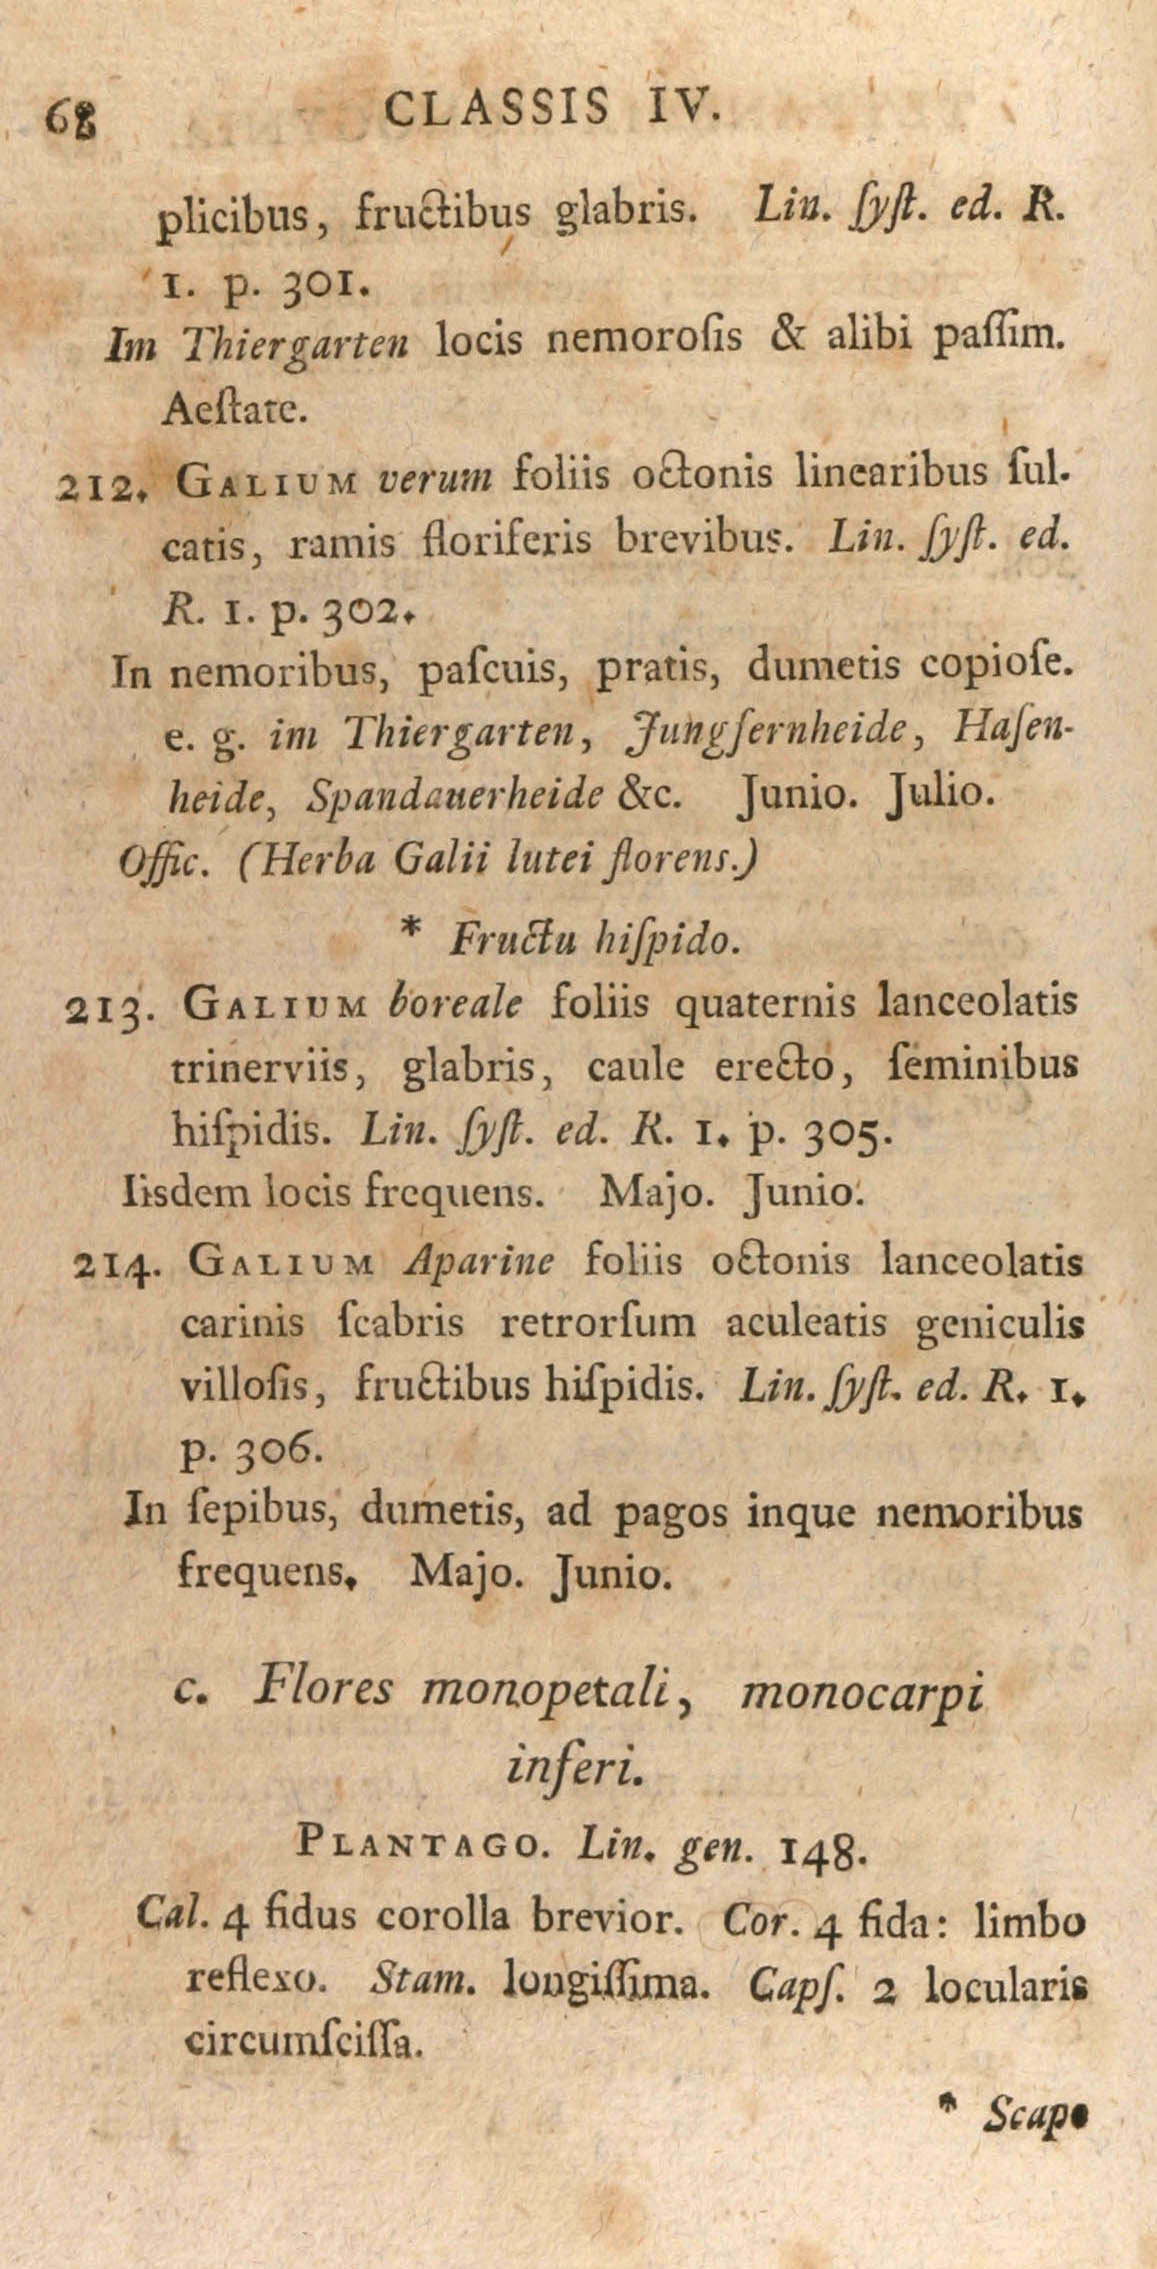 68 CLASSIS IV.
plicibus, fructibus glabris. Lin. ſyſt. ed. R.
1. p. 301.
Im Thiergarten locis nemoroſis & alibi paſſim.
Aeſtate.
212. GALIUM verum foliis octonis linearibus ſul-
catis, ramis floriferis brevibus. Lin. ſyſt. ed.
R. 1. p. 302.
In nemoribus, paſcuis, pratis, dumetis copioſe.
e. g. im Thiergarten, Jungfernheide, Haſen-
heide, Spandauerheide &c. Junio. Julio.
Offic. (Herba Galii lutei florens.)
* Fructu hiſpido.
213. GALIUM boreale foliis quaternis lanceolatis
trinerviis, glabris, caule erecto, ſeminibus
hiſpidis. Lin. ſyſt. ed. R. 1. p. 305.
Iisdem locis frequens. Majo. Junio.
214. GALIUM Aparine foliis octonis lanceolatis
carinis ſcabris retrorſum aculeatis geniculis
villoſis, fructibus hiſpidis. Lin. ſyſt. ed. R. 1.
p. 306.
In ſepibus, dumetis, ad pagos inque nemoribus
frequens. Majo. Junio.
c. Flores monopetali, monocarpi
inferi.
PLANTAGO. Lin. gen. 148.
Cal. 4 fidus corolla brevior. Cor. 4 fida: limbo
reflexo. Stam. longiſſima. Capſ. 2 locularis
circumſciſſa.
* Scapo